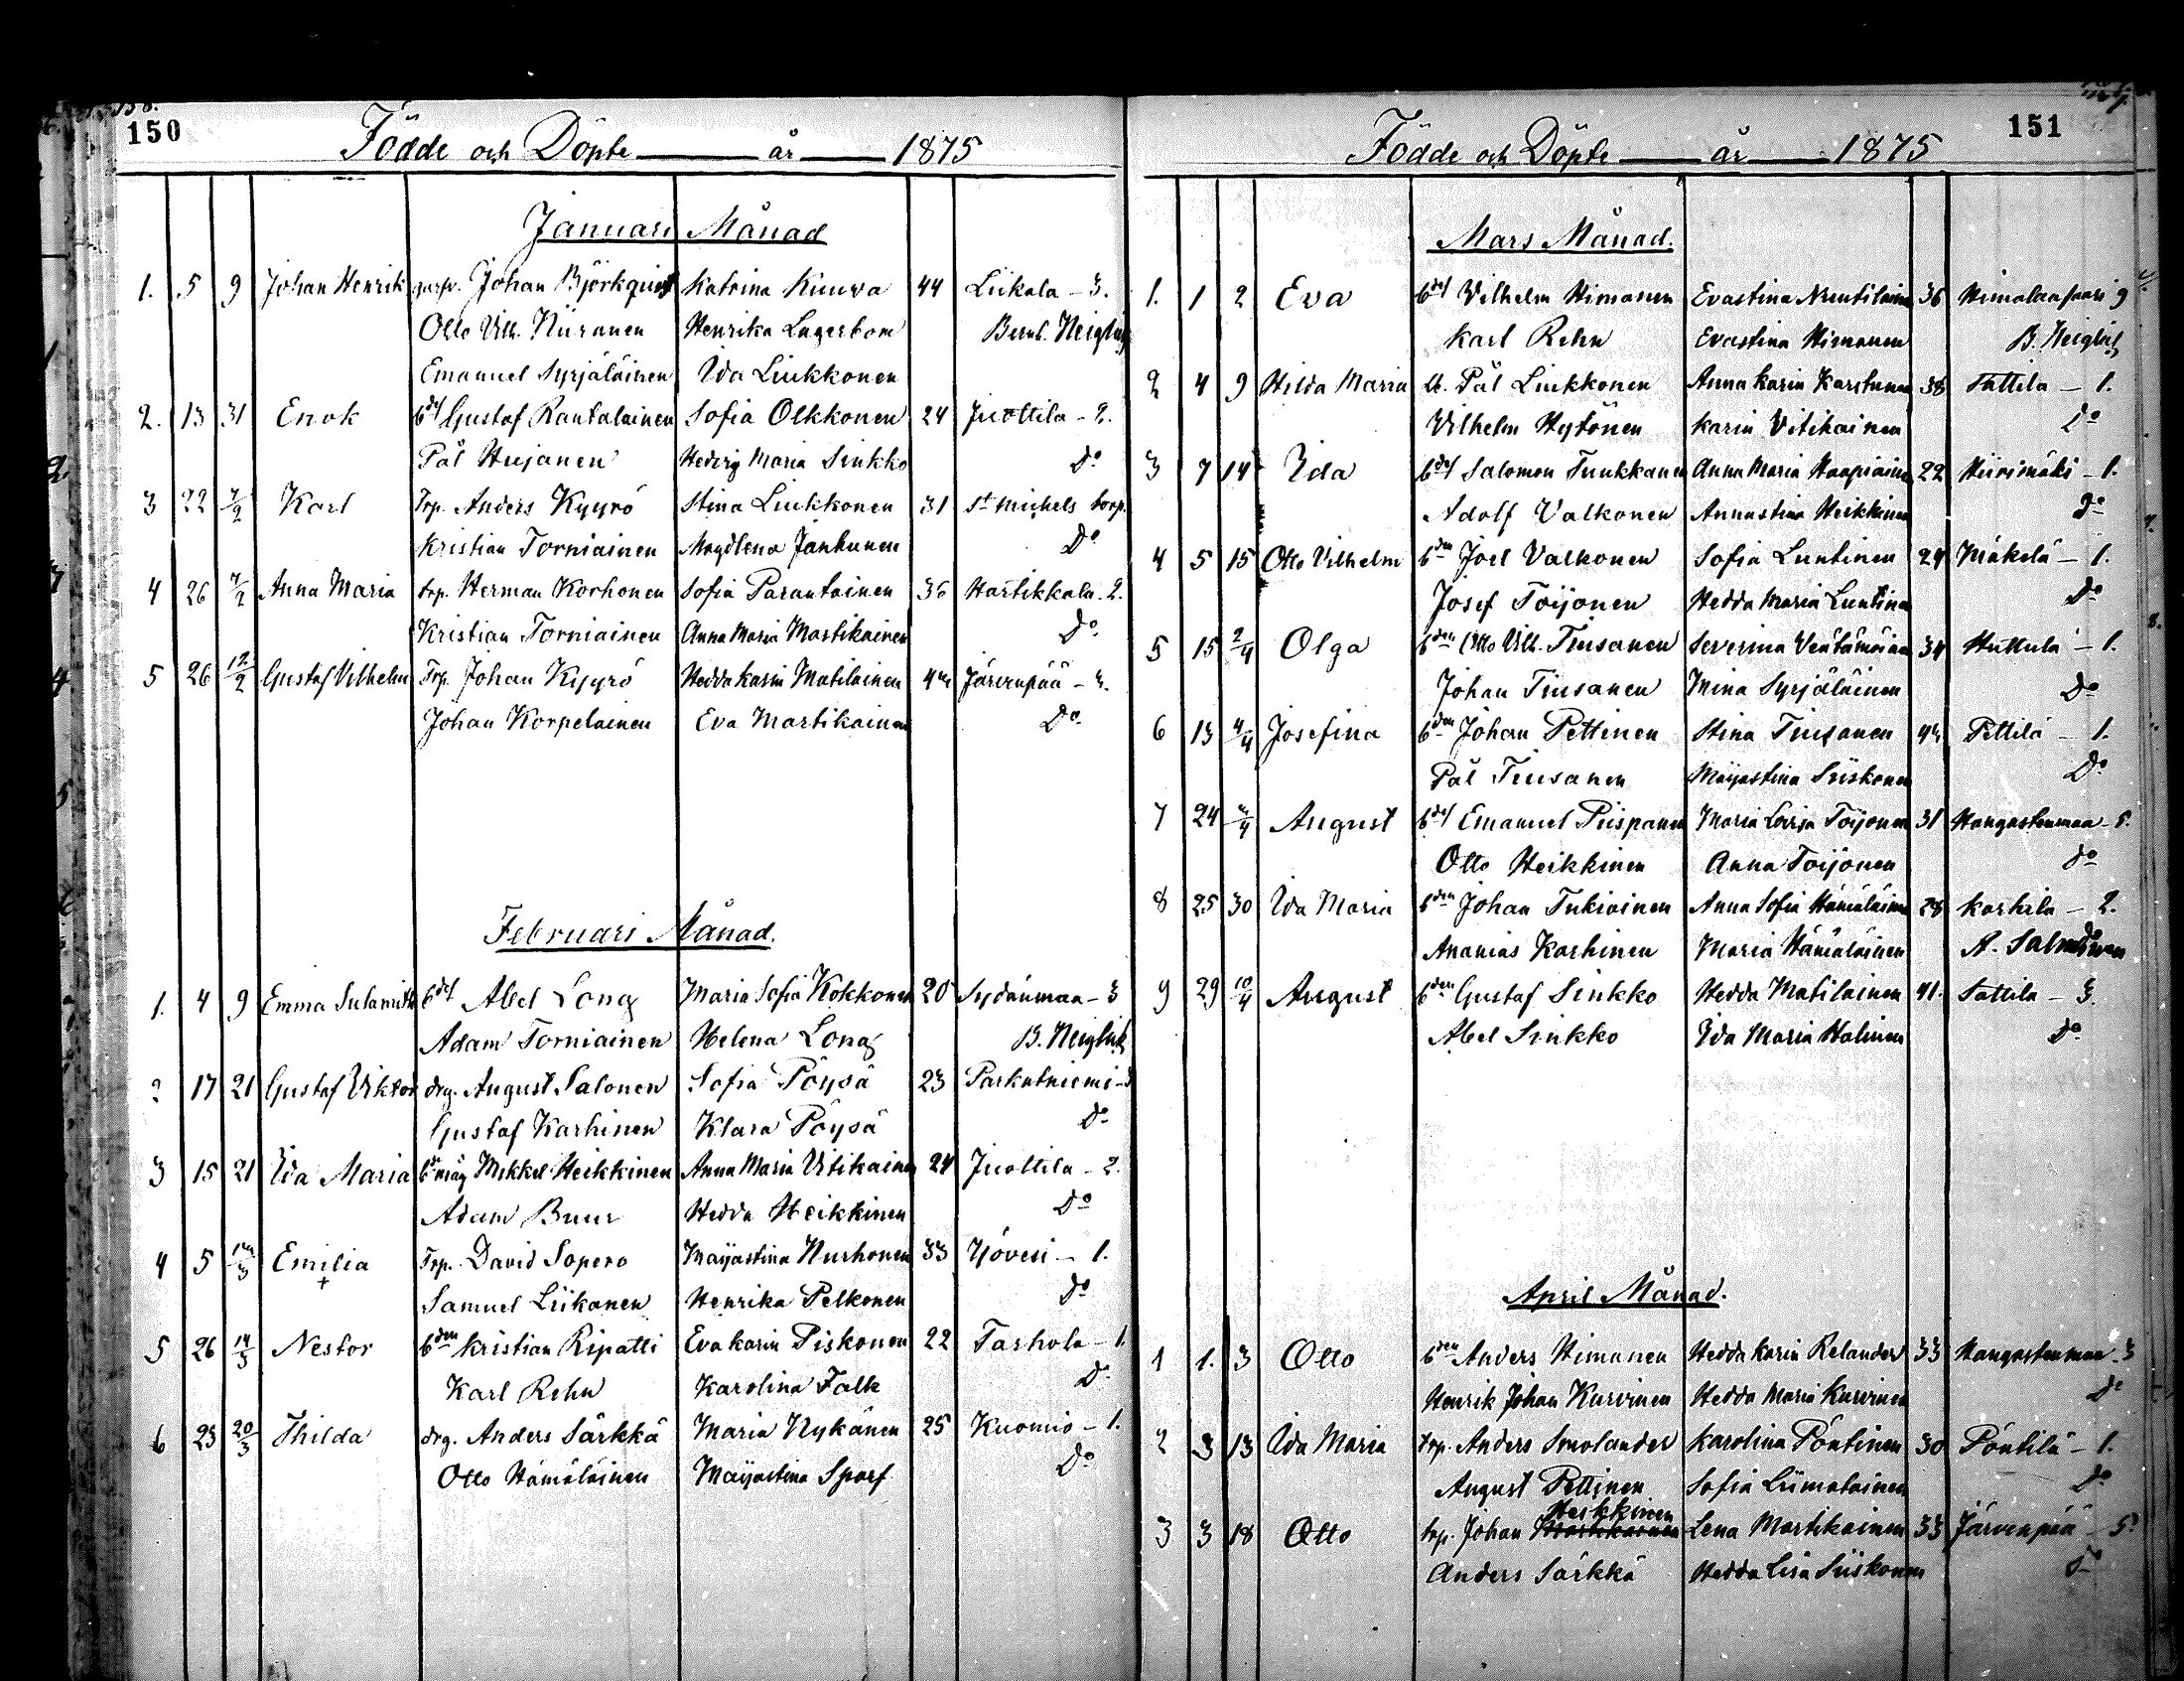 150
Födde och Döpte — år — 1875
Januari Månad
1. 5 9 Johan Henrik Johan Björkquist Katrina Kuuva 44 Liikala - 3.
Otto Vilh. Niiranen Henrika Lagerbom Bernh. Neiglick
Emanuel Syrjäläinen Ida Liukkonen
2. 13 31 Enok Gustaf Rantalainen Sofia Olkkonen 24 Juottila - 2.
Pål Hujanen Hedvig Maria Sinkko Do
3 22 7/2 Karl Trp. Anders Kyyrö Stina Liukkonen 31 St Michels torp.
Kristian Torniainen Magdlena Janhunen Do
4 26 7/2 Anna Maria trp. Herman Korhonen Sofia Parantainen 36 Hartikkala. 2.
Kristian Torniainen Anna Maria Martikainen Do
5 26 12/2 Gustaf Vilhelm Trp. Johan Kyyrö Hedda Karin Matilainen Järvenpää - 3.
Johan Korpelainen Eva Martikainen Do
Februari Månad.
1. 4 9 Emma Sulamith Abel Long Maria Sofia Kokkonen 20 Sydänmaa - 3
Adam Torniainen Helena Long B. Neiglick
2 17 21 Gustaf Viktor drg. August Salonen Sofia Pöysä 23 Parkatniemi - 3
Gustaf Karhinen Klara Pöysä Do
3 15 21 Ida Maria Mikkel Heikkinen Anna Maria Vitikainen 24 Juottila - 2.
Adam Buur Hedda Heikkinen Do
4 5 Emilia Trp. David Sopero Maijastina Nurhonen 33 Yövesi - 1.
+
Samuel Liikanen Henrika Pelkonen Do
5 26 14/3 Nestor Kristian Ripatti Eva Karin Piskonen 22 Tarhola - 1.
Karl Rehn Karolina Falk Do
6 23 20/3 Thilda drg. Anders Särkkä Maria Nykänen 25 Kuomio - 1.
Otto Hämäläinen Maijastina Sparf Do
151
Födde och Döpte — år — 1875
Mars Månad.
1. 1 2 Eva Vilhelm Himanen Evastina Nuutilainen 36 Himalaapaari 9
Karl Rehn Evastina Himanen B. Neiglick
2 4 9 Hilda Maria Pål Liukkonen Anna Karin Karstunen 38 Tattila - 1.
Vilhelm Hytönen Karin Vitikainen Do
3 7 14 Ida Salomon Tuukkanen Anna Maria Haapiainen 22 Hiirimäki - 1.
Adolf Valkonen Annastina Heikkinen Do
4 5 15 Otto Vilhelm Joel Valkonen Sofia Luntinen 24 Mäkelä - 1.
Josef Toijonen Hedda Maria Luntinen Do
5 15 2/4 Olga Otto Vilh. Tiusanen Severina Ventämöinen 34 Huttula - 1.
Johan Tiusanen Mina Syrjäläinen Do
6 13 4/4 Josefina Johan Pettinen Stina Tiusanen Pettilä - 1.
Pål Tiusanen Maijastina Siiskonen Do
7 24 4/4 August Emanuel Piispanen Maria Lovisa Toijonen 31 Hangastenmaa - 5.
Otto Heikkinen Anna Toijonen do
8 25 30 Ida Maria Johan Tukiainen Anna Sofia Hämäläinen 28 Karhila - 2.
Ananias Karhinen Maria Hämäläinen A. Salminen
9 29 10/4 August Gustaf Sinkko Hedda Matilainen 41. Tattila - 3.
Abel Sinkko Ida Maria Halinen Do
April Månad.
1 1. 3 Otto Anders Himanen Hedda Karin Relander 33 Hangastenmaa - 3
Henrik Johan Kurvinen Hedda Maria Kurvinen Do
2 3 13 Ida Maria trp. Anders Smolander Karolina Pöntinen 30 Pöntilä - 1.
August Pettinen Sofia Liimatainen Do
Heikkinen
3 3 18 Otto trp. Johan Martikainen Lena Martikainen 33 Järvenpää - 5
Anders Särkkä Hedda Lisa Siiskonen